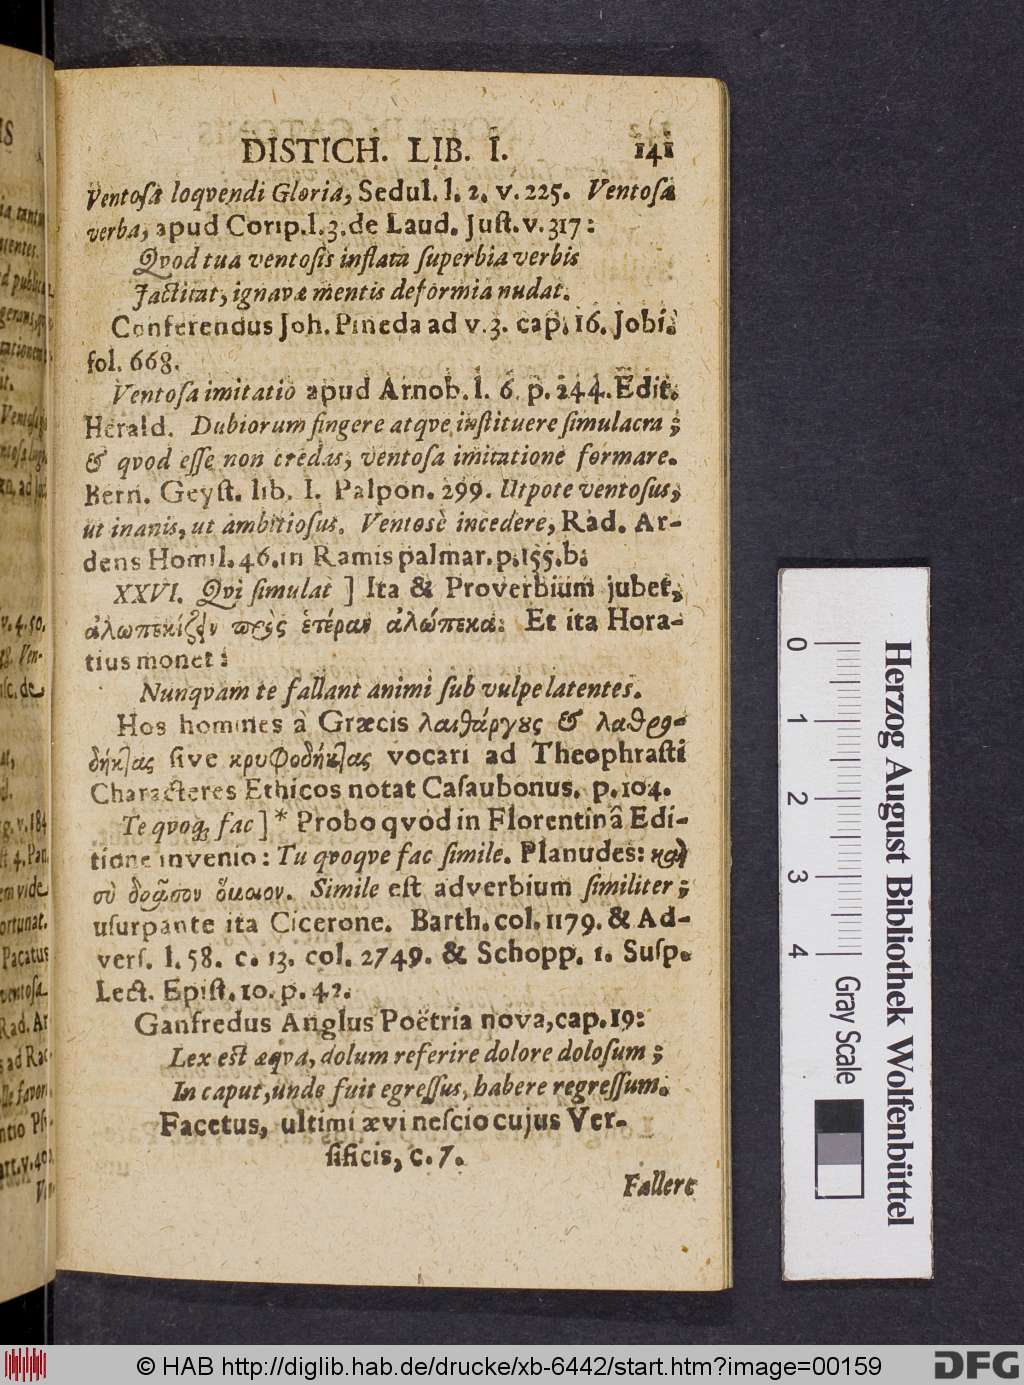 DISTICH. LIB. I. 141
Ventoſa loqvendi Gloria, Sedul. l. 2. v. 225. Ventoſa
verba, apud Corip. l. 3. de Laud. Juſt. v. 317:
Qvod tua ventoſis inflata ſuperbia verbis
Jactitat, ignavæ mentis deformia nudat.
Conferendus Joh. Pineda ad v. 3. cap. 16. Jobi.
fol. 668.
Ventoſa imitatio apud Arnob. l. 6. p. 244. Edit.
Herald. Dubiorum fingere atqve inſtituere ſimulacra;
& qvod eſſe non credas, ventoſa imitatione formare.
Bern. Geyſt. lib. I. Palpon. 299. Utpote ventoſus,
ut inanis, ut ambitioſus. Ventosè incedere, Rad. Ar-
dens Homil. 46. in Ramis palmar. p. 155. b.
XXVI. Qvi ſimulat ] Ita & Proverbium jubet,
ἀλωπεκίζειν πρὸς ἑτέραν ἀλώπεκα: Et ita Hora-
tius monet:
Nunqvam te fallant animi ſub vulpe latentes.
Hos homines à Græcis λαιθάργȣς & λαθρο-
δήκτας ſive κρυφοδήκτας vocari ad Theophraſti
Characteres Ethicos notat Caſaubonus. p. 104.
Te qvoq; fac ] * Probo qvod in Florentinâ Edi-
tione invenio: Tu qvoqve fac ſimile. Planudes: καὶ
σὺ δρᾶσον ὅμοιον. Simile eſt adverbium ſimiliter;
uſurpante ita Cicerone. Barth. col. 1179. & Ad-
verſ. l. 58. c. 13. col. 2749. & Schopp. 1. Suſp.
Lect. Epiſt. 10. p. 42.
Ganfredus Anglus Poëtria nova, cap. 19:
Lex eſt æqva, dolum referire dolore doloſum;
In caput, unde fuit egreſſus, habere regreſſum.
Facetus, ultimi ævi neſcio cujus Ver-
ſificis, c. 7.
Fallere
0 1 2 3 4
Gray Scale
Herzog August Bibliothek Wolfenbüttel
© HAB http://diglib.hab.de/drucke/xb-6442/start.htm?image=00159
DFG